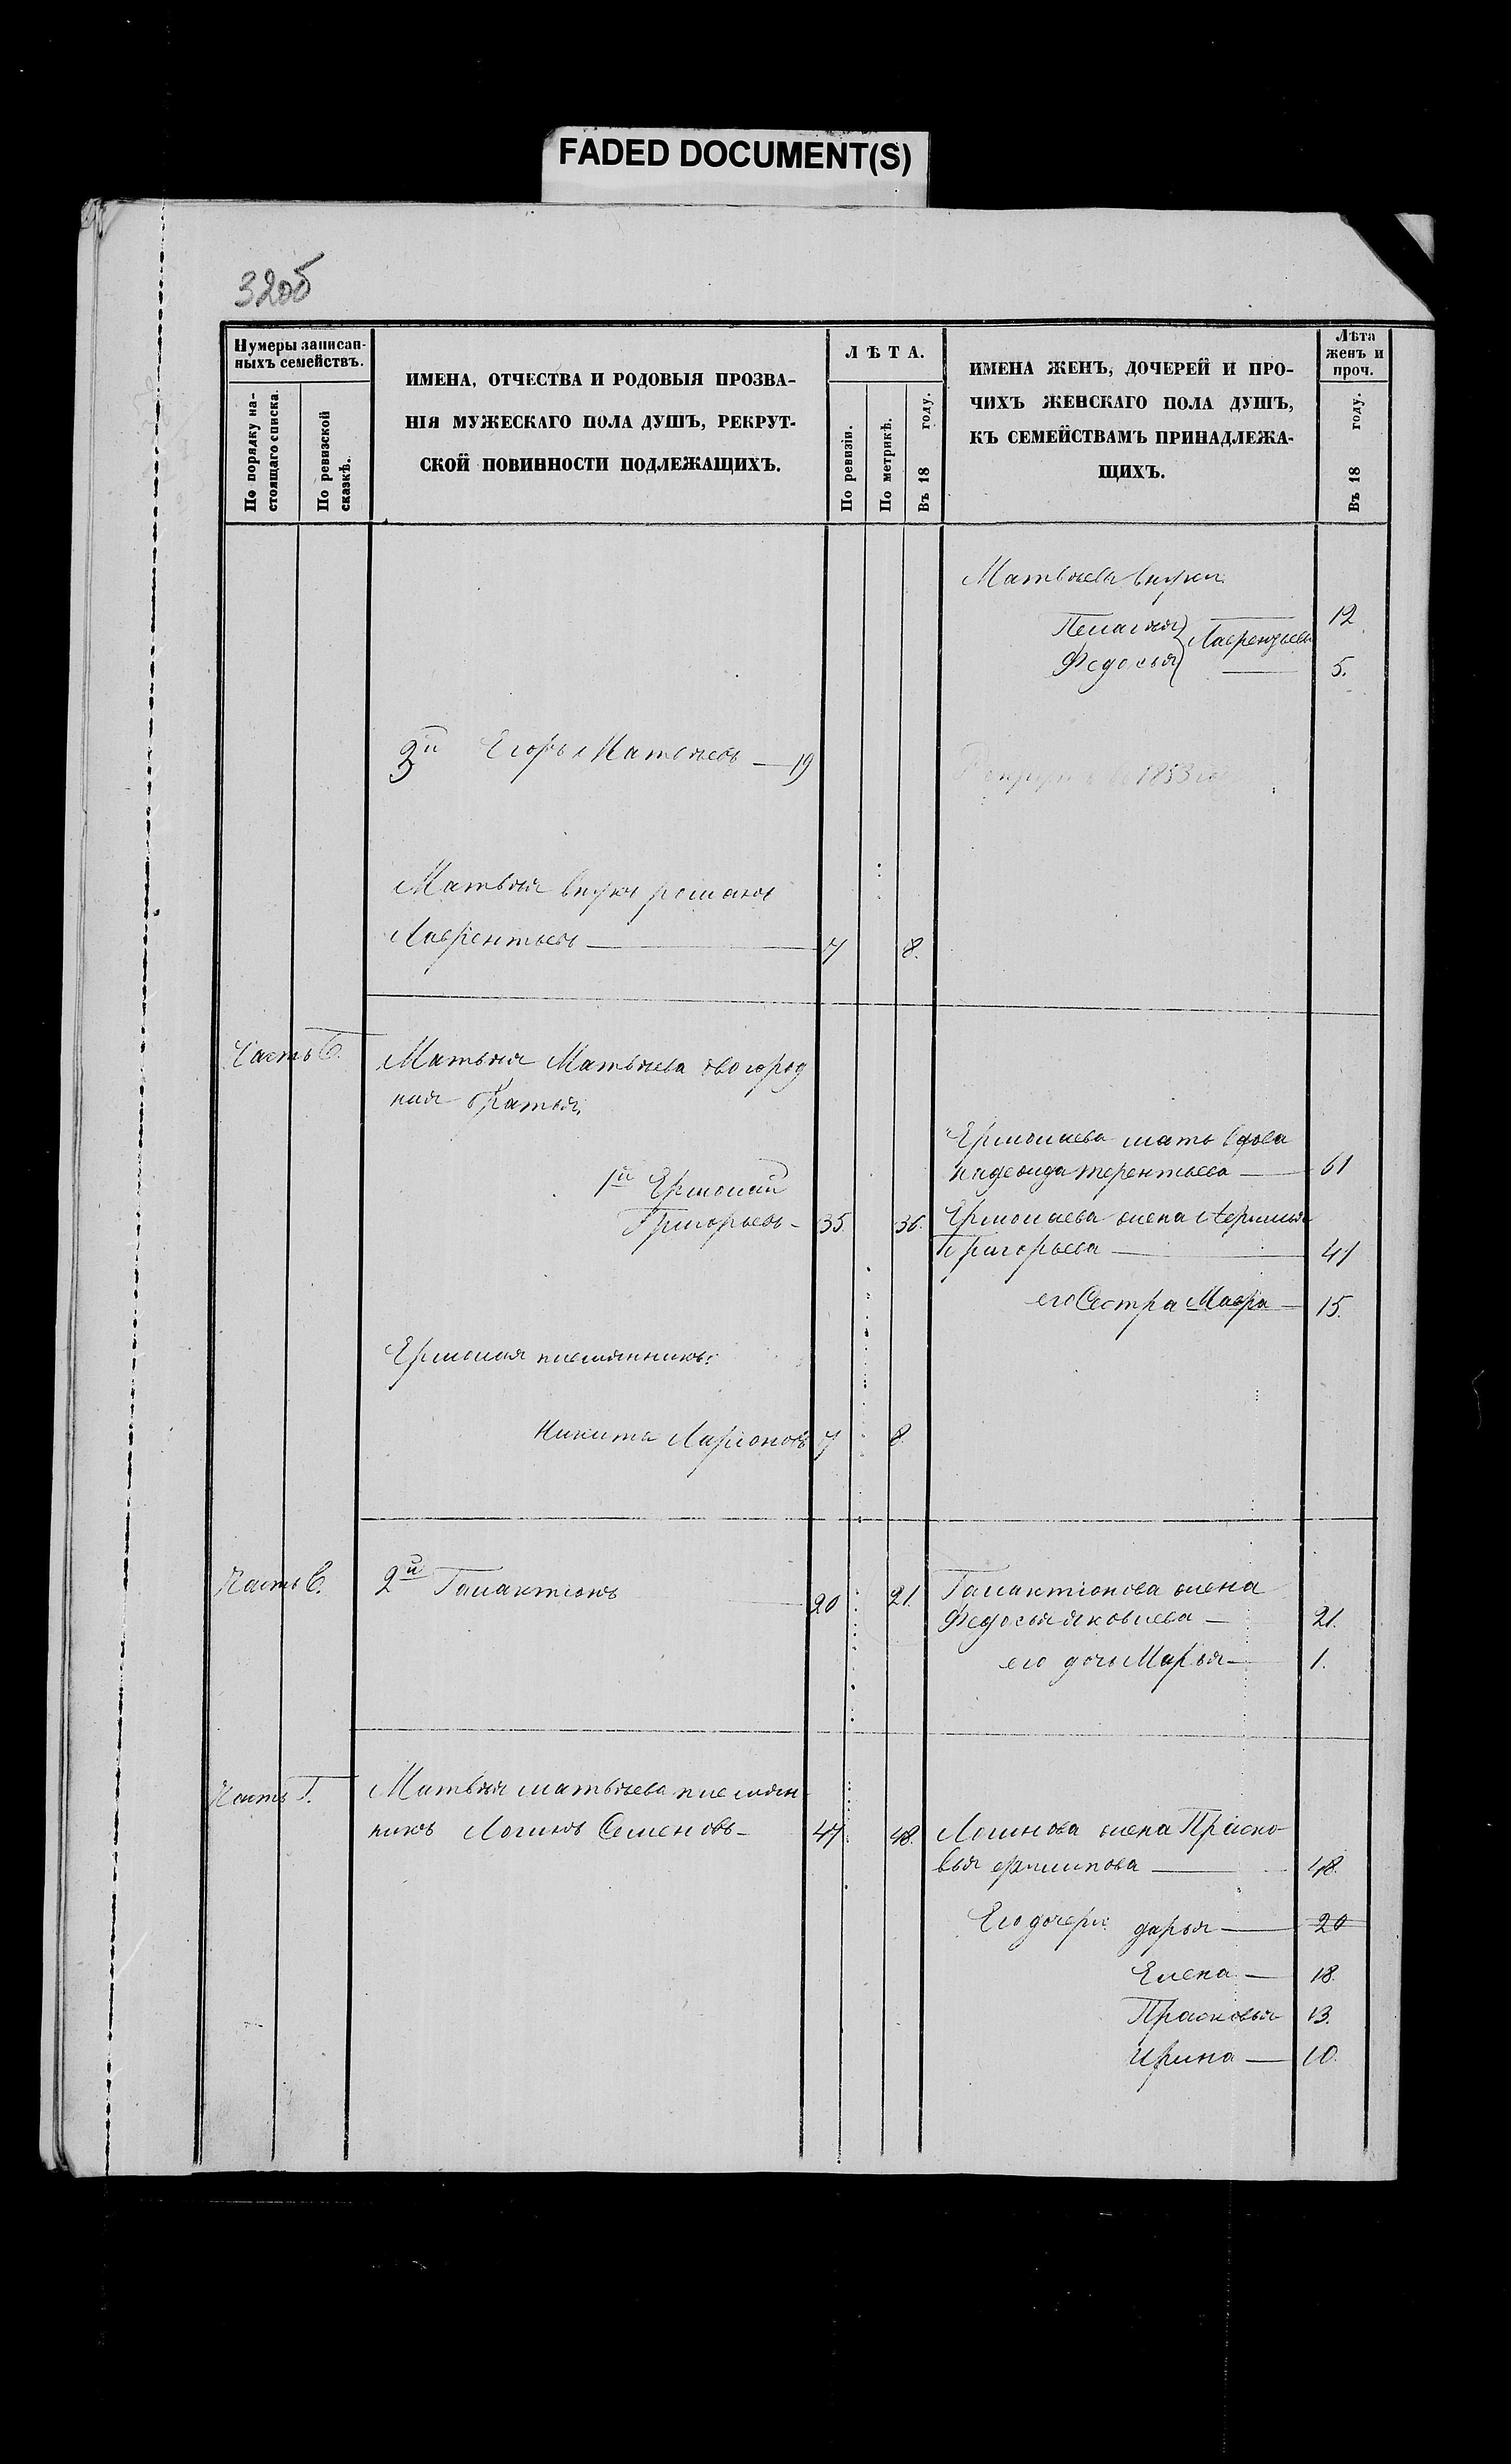 FADED DOCUMENT(S)
32об
Нумеры записан-
ныхъ семействъ.
По порядку на-
стоящаго списка.
По ревизской
сказкѣ.
ИМЕНА, ОТЧЕСТВА И РОДОВЫЯ ПРОЗВА-
НІЯ МУЖЕСКАГО ПОЛА ДУШЪ, РЕКРУТ-
СКОЙ ПОВИННОСТИ ПОДЛЕЖАЩИХЪ.
ЛѢТА.
По ревизіи.
По метрикѣ.
Въ 18 году.
ИМЕНА ЖЕНЪ, ДОЧЕРЕЙ И ПРО-
ЧИХЪ ЖЕНСКАГО ПОЛА ДУШЪ,
КЪ СЕМЕЙСТВАМЪ ПРИНАДЛЕЖА-
ЩИХЪ.
Лѣта
женъ и
проч.
Въ 18 году.
Матвѣева внуки
Пелагия 12
Лаврентьевы
Федосья 5.
3й Егоръ Матвѣевъ — 19
Рекрутъ 1853
Матвѣя внукъ романъ
Лаврентьевъ — 7 8.
Часть
Матвѣя Матвѣева двоюрод
ния братья,
Ермолаева мать вдова
надежда терентьева — 61
1й Ермолай
Григорьевъ - 35 36. Ермолаева жена
Григорьева — 41
его Сестра Мавра — 15.
Ермолая племянникъ:
Никита Ларионовъ 7 8.
Часть
2й Галактіонъ 20 21. Галактіонова жена
Федосья яковлева — 21.
его дочь Марья — 1.
Часть Г. Матвѣя матвѣева племян
никъ Логинъ Семеновъ - 47 48. Логинова жена Праско-
вья филипова — 48.
Его дочери дарья — 20
Елена — 18.
Прасковья 13.
ирина — 10.